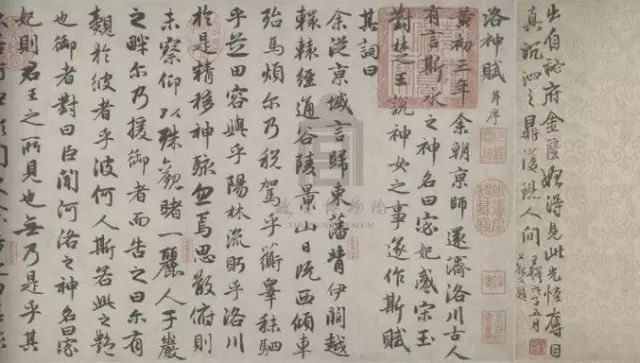 出自祕府金匱始得見此光怪奪目
真沉泗之鼎復現人間
戊子五月
洛神賦 并序
黄初三年余朝京師還濟洛川古人
有言斯水之神名曰宓妃感宋玉
對楚王說神女之事遂作斯賦
其詞曰
余從京域言歸東藩背伊闕越
轘轅經通谷陵景山日既西傾車
殆馬煩尔乃税駕乎蘅皋秣駟
乎芝田容與乎陽林流眄乎洛川
於是精移神駭忽焉思散俯則
未察仰以殊觀睹一麗人于巖
之畔尔乃援御者而告之曰尔有
覿於彼者乎彼何人斯若此之艷
也御者對曰臣聞河洛之神名曰宓
妃則君王之所見也無乃是乎其
故宮博物院